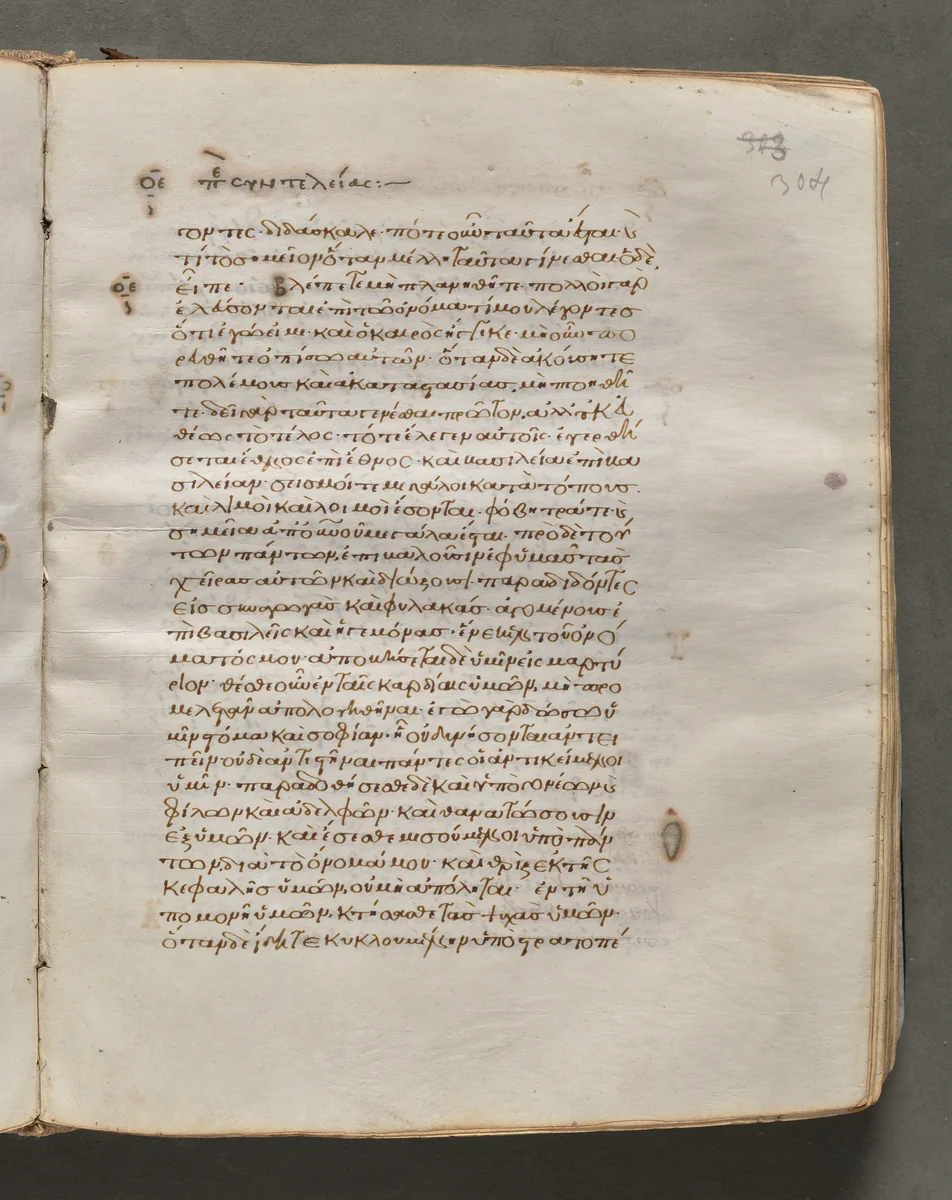 313
304
οε πε συντελείας:
τοντες· διδάσκαλε· πότε οὖν ταῦτα ἔσται· κ
τί τὸ σημεῖον ὅταν μέλλη ταῦτα γίνεσθαι· ὁ δὲ
οε εἶπε· Βλέπετε μὴ πλανηθῆτε· πολλοὶ γὰρ
ἐλεύσονται ἐπὶ τῶ ὀνόματί μου λέγοντες
ὅτι ἐγώ εἰμι· καὶ ὁ καιρὸς ἤγγικε· μὴ οὖν πο
ρευθῆτε ὀπίσω αὐτῶν· ὅταν δὲ ἀκούσητε
πολέμους καὶ ἀκαταστασίας, μὴ πτοηθῆ
τε· δεῖ γὰρ ταῦτα γενέσθαι πρῶτον, ἀλλ' οὐκ εὐ
θέως τὸ τέλος· τότε ἔλεγεν αὐτοῖς· ἐγερθή
σεται ἔθνος ἐπὶ ἔθνος· καὶ βασιλεία ἐπὶ βα
σιλείαν· σεισμοί τε μεγάλοι κατὰ τόπους
καὶ λιμοὶ καὶ λοιμοὶ ἔσονται· φόβητρά τε κ
σημεῖα ἀπὸ οὐνοῦ μεγάλα ἔσται· πρὸ δὲ τού
των πάντων, ἐπιβαλοῦσιν ἐφ' ὑμᾶς τὰς
χεῖρας αὐτῶν καὶ διώξουσι· παραδιδόντες
εἰς συναγωγὰς καὶ φυλακάς· ἀγομένους ἐ
πὶ βασιλεῖς καὶ ἡγεμόνας· ἕνεκεν τοῦ ὀνό
ματός μου· ἀποβήσεται δὲ ὑμῖν εἰς μαρτύ
ριον· θέσθε οὖν ἐν ταῖς καρδίαις ὑμῶν, μὴ προ
μελετᾶν ἀπολογηθῆναι· ἐγὼ γὰρ δώσω ὑ
μῖν στόμα καὶ σοφίαν· ἧ οὐ δυνήσονται ἀντει
πεῖν οὐδὲ ἀντιστῆναι πάντες οἱ ἀντικείμενοι
ὑμῖν· παραδοθήσεσθε δὲ καὶ ὑπὸ γονέων κ
φίλων καὶ ἀδελφῶν· καὶ θανατώσουσιν
ἐξ ὑμῶν· καὶ ἔσεσθε μισούμενοι ὑπὸ πάν
των διὰ τὸ ὄνομά μου· καὶ θρὶξ ἐκ τῆς
κεφαλῆς ὑμῶν, οὐ μὴ ἀπόληται· ἐν τῆ ὑ
πομονῆ ὑμῶν, κτήσασθε τὰς ψυχὰς ὑμῶν·
ὅταν δὲ ἴδητε κυκλουμένην ὑπὸ στρατοπέ